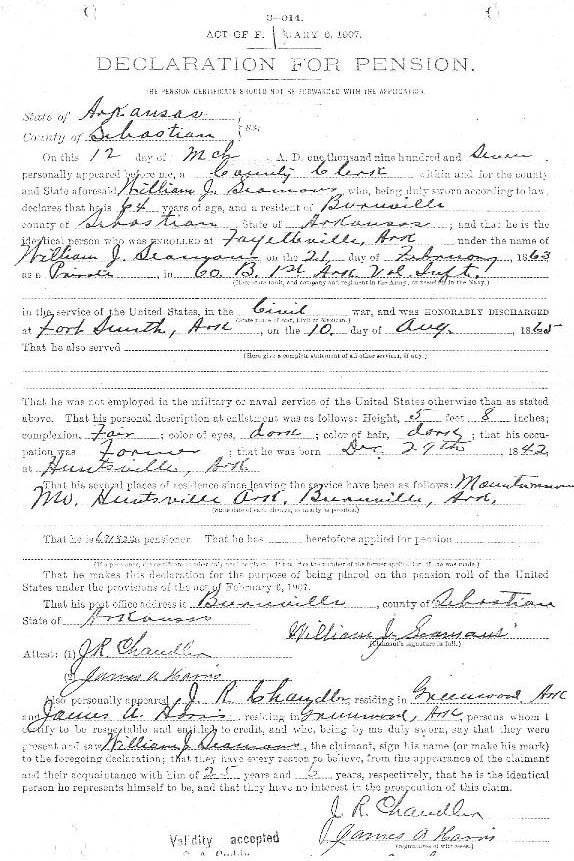 3—014.
ACT OF F UARY 6, 1907.
DECLARATION FOR PENSION.
THE PENSION CERTIFICATE SHOULD NOT BE FORWARDED WITH THE APPLICATION.
State of Arkansas
County of Sebastian } ss:
On this 12 day of Mch, A. D. one thousand nine hundred and Seven
personally appeared before me, a County Clerk within and for the county
and State aforesaid William J. Seamans who, being duly sworn according to law,
declares that he is 64 years of age, and a resident of Burnville
county of Sebastian State of Arkansas; and that he is the
identical person who was ENROLLED at Fayetteville, Ark under the name of
William J. Seamans on the 21 day of February, 1863
as a Private in Co B. 1st Ark Vol. Inft.
(Here state rank, and company and regiment in the Army, or vessel if in the Navy.)
in the service of the United States, in the Civil war, and was HONORABLY DISCHARGED
(State name of war, Civil or Mexican.)
at Fort Smith, Ark, on the 10. day of Aug. 1865
That he also served
(Here give a complete statement of all other services, if any.)
That he was not employed in the military or naval service of the United States otherwise than as stated
above. That his personal description at enlistment was as follows: Height, 5 feet 8 inches;
complexion, Fair; color of eyes, dark; color of hair, dark; that his occu-
pation was Farmer; that he was born Dec. 29th 1842
at Huntsville, Ark
That his several places of residence since leaving the service have been as follows:
Mo. Huntsville Ark. Burnville, Ark.
(State date of each change, as nearly as possible.)
That he is a pensioner. That he has heretofore applied for pension
That he makes this declaration for the purpose of being placed on the pension roll of the United
States under the provisions of the act of February 6, 1907.
That his post office address is Burnville, county of Sebastian
State of Arkansas
William J. Seamans
(Claimant's signature in full.)
Attest: (1) J R Chandler
(2) James A Harris
Also personally appeared J. R Chandler, residing in Greenwood Ark
and James A. Harris, residing in Greenwood, Ark persons whom I
certify to be respectable and entitled to credit, and who, being by me duly sworn, say that they were
present and saw William J. Seamans, the claimant, sign his name (or make his mark)
to the foregoing declaration; that they have every reason to believe, from the appearance of the claimant
and their acquaintance with him of 25 years and 5 years, respectively, that he is the identical
person he represents himself to be, and that they have no interest in the prosecution of this claim.
J. R. Chandler
James A Harris
(Signatures of witnesses.)
Validity accepted